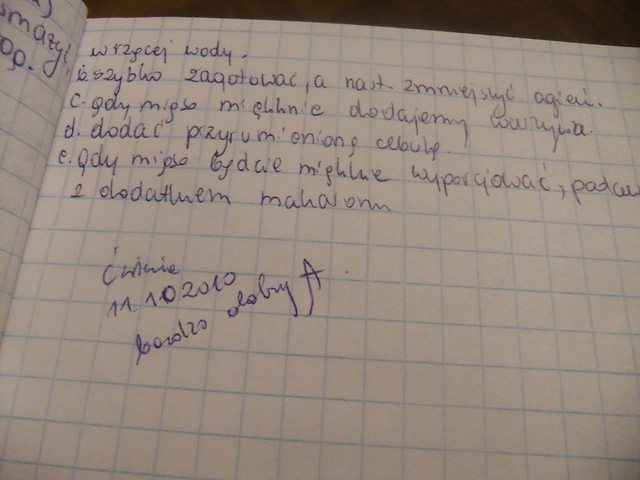 smażyć
w rzącej wody.
b. szybko zagotować, a nast. zmniejszyć ogień.
c. gdy mięso mięknie dodajemy warzywa.
d. dodać przyrumienioną cebulę.
e. gdy mięso będzie miękkie wyporcjować, podaw
z dodatkiem makaronu
11.10 2010
bardzo dobry A